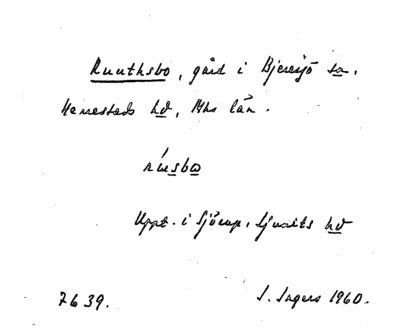 Ruuthsbo, gård i Bjeresjö sn.
Herrestads hd, Mhs län.
rúsbo
Uppt. i Sjörup, Ljunits hd
7639. S. Ingers 1960.